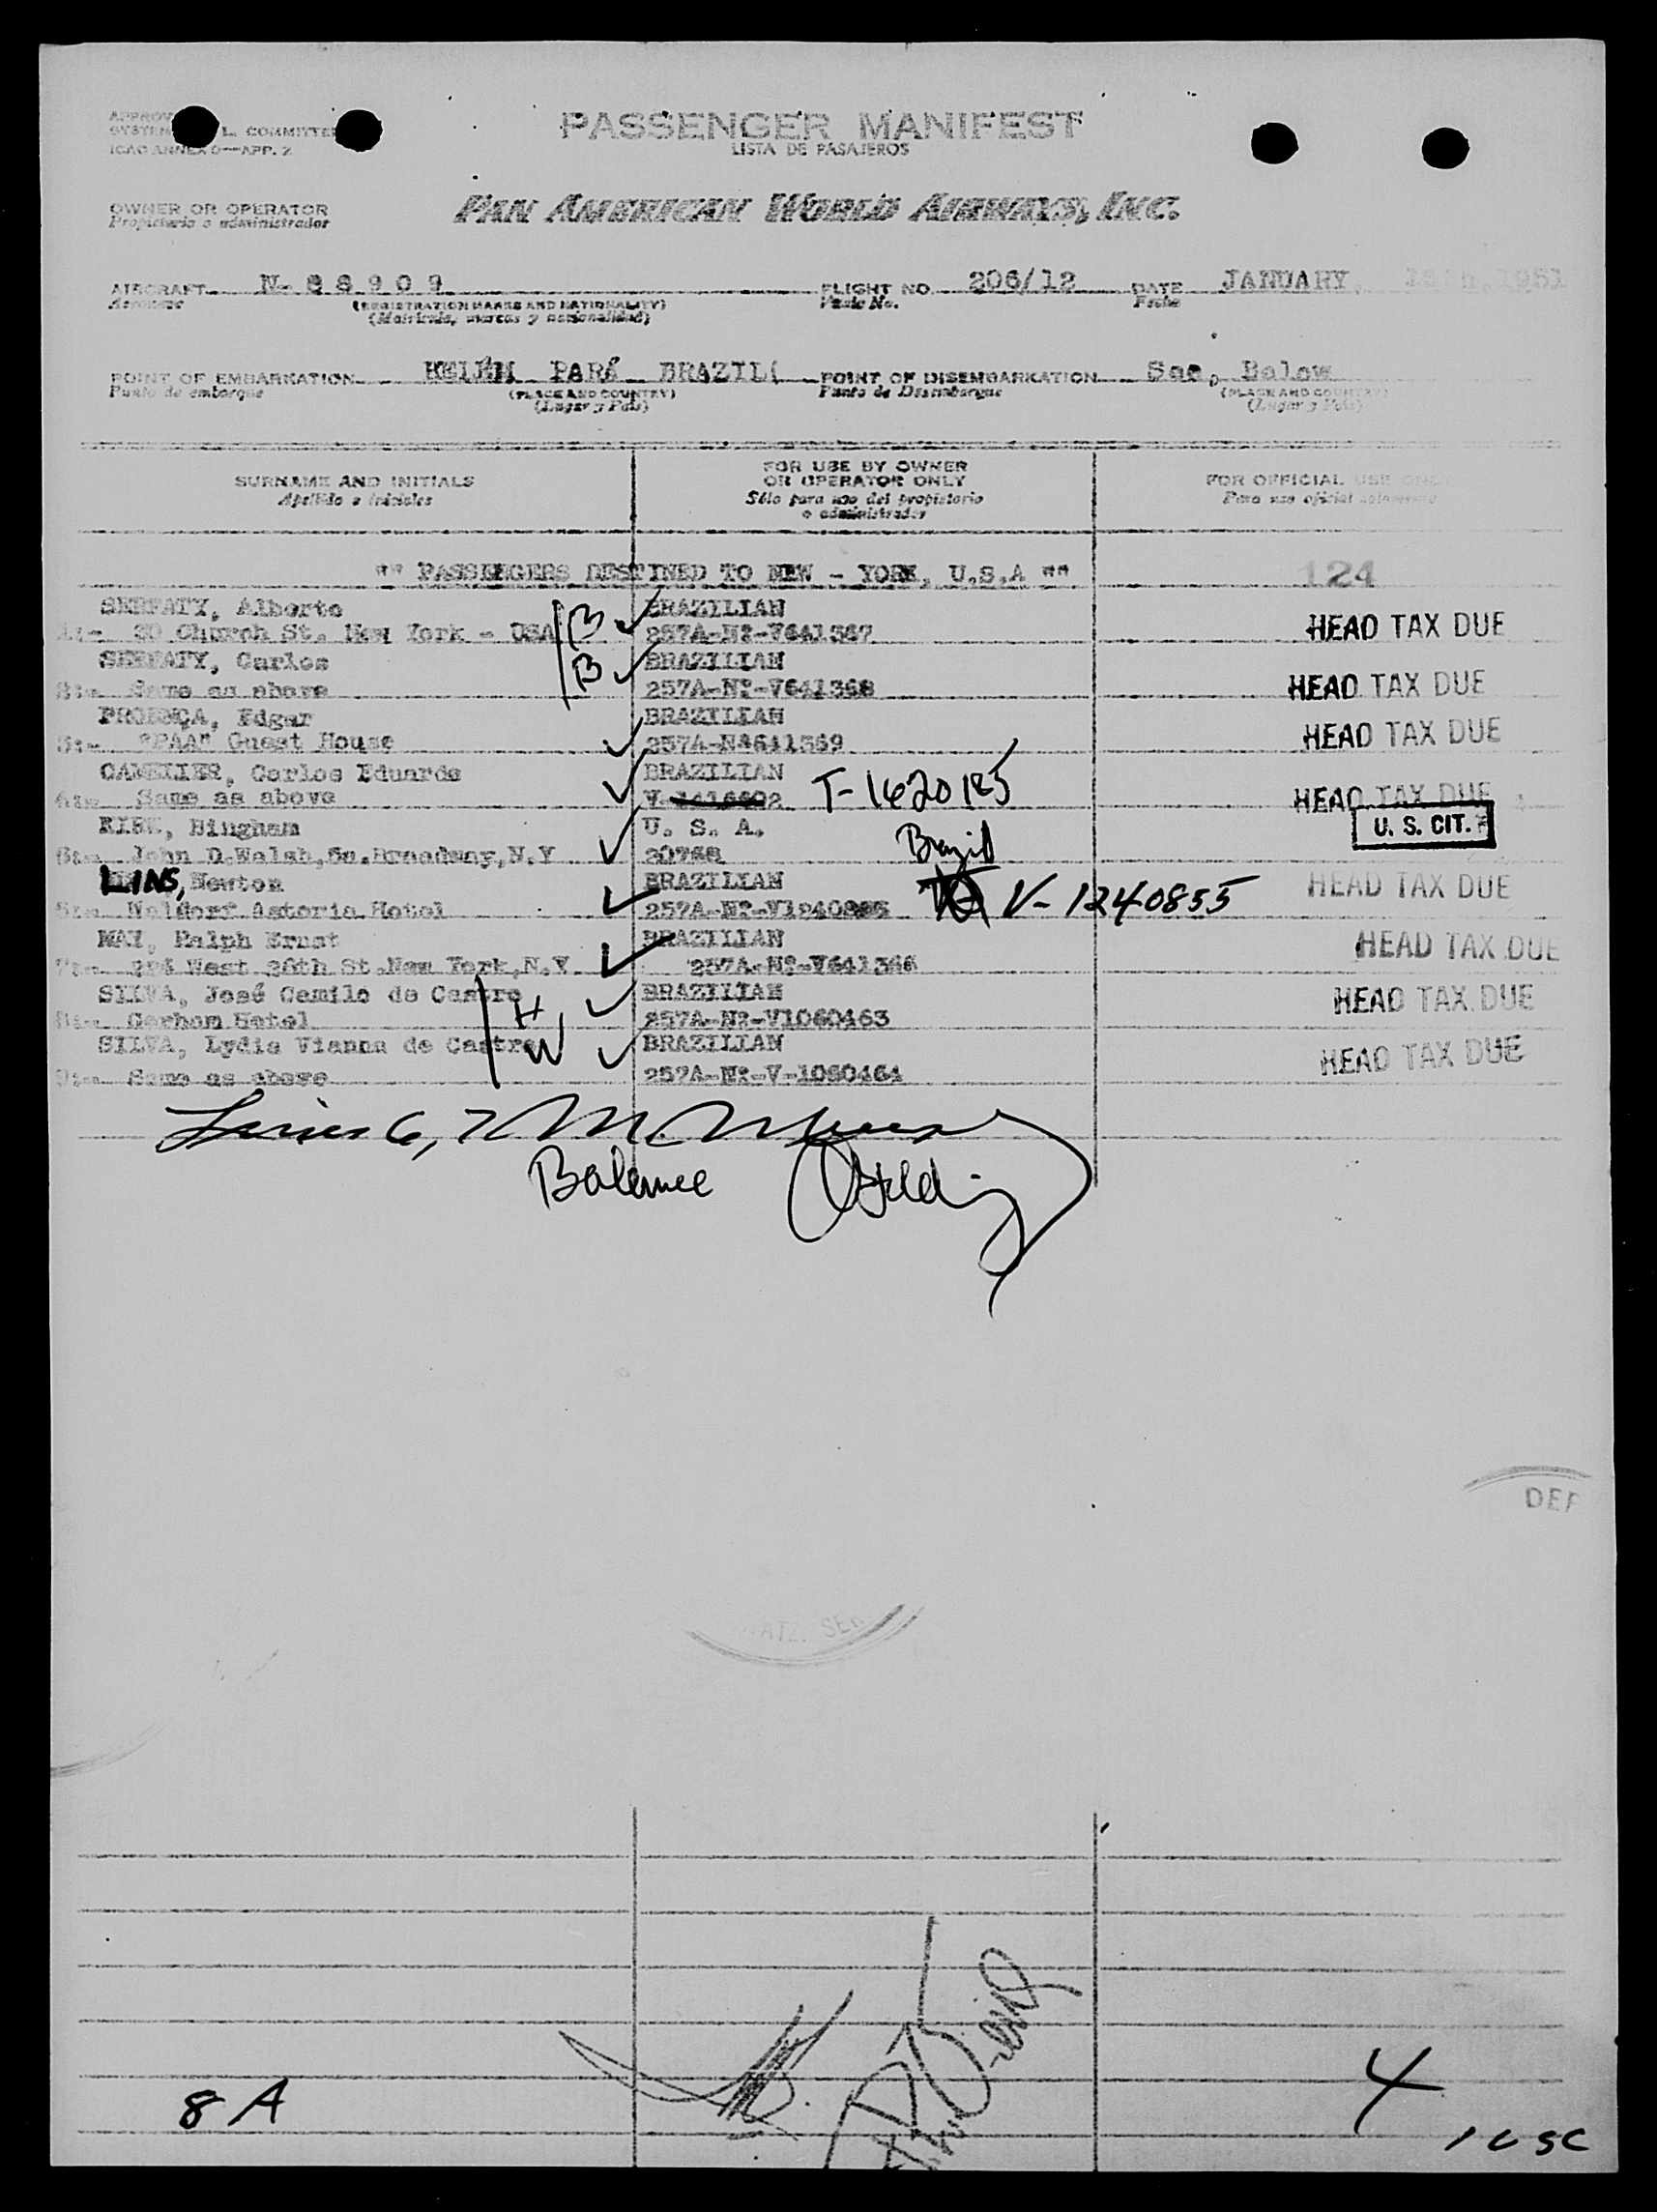 PASSENGER MANIFEST
LISTA DE PASAJEROS
L. COMMITTEE
ICAO ANNEX 9—APP. 2
OWNER OR OPERATOR
Propietario o administrador
PAN AMERICAN WORLD AIRWAYS, INC.
AIRCRAFT N-88909 FLIGHT NO. 206/12 DATE JANUARY, 1951
Aeronave (REGISTRATION MARKS AND NATIONALITY) Vuelo No. Fecha
(Matrícula, marcas y nacionalidad)
POINT OF EMBARKATION BELÉM PARÁ BRAZIL POINT OF DISEMBARKATION See, Balow
Punto de embarque (PLACE AND COUNTRY) Punto de Desembarque (PLACE AND COUNTRY)
(Lugar y País) (Lugar y País)
SURNAME AND INITIALS FOR USE BY OWNER OR OPERATOR ONLY FOR OFFICIAL USE ONLY
Apellido e iniciales Sólo para uso del propietario o administrador Para uso oficial solamente
"" PASSENGERS DESTINED TO NEW - YORK, U.S.A "" 124
SERFATY, Alberto B BRAZILIAN
1:- 20 Church St. New York - USA 257A-Nº-V641367 HEAD TAX DUE
SERFATY, Carlos B BRAZILIAN
Same as above 257A-Nº-V641368 HEAD TAX DUE
PROENÇA, Edgar BRAZILIAN
"PAA" Guest House 257A-Nº641369 HEAD TAX DUE
CAMELIER, Carlos Eduardo BRAZILIAN
Same as above T-1620185 HEAD TAX DUE
Bingham U. S. A. U. S. CIT.
John D.Walsh, Broadway, N.Y 20768 Brazil
LINS, Newton BRAZILIAN HEAD TAX DUE
Waldorf Astoria Hotel V-1240855
MAY, Ralph Ernst BRAZILIAN HEAD TAX DUE
West 26th St.New York,N.Y. 257A-Nº-V641366
SILVA, José Camilo de Castro H BRAZILIAN HEAD TAX DUE
Gorham Hotel 257A-Nº-V1060463
SILVA, Lydia Vianna de Castro W BRAZILIAN HEAD TAX DUE
Same as above 257A-Nº-V-1060464
Lines 6, 7
Balance
DEP
NATZ. SER
8 A
4
1 USC